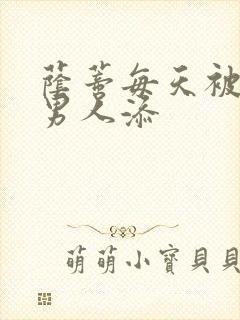 蔭蒂每天被
男人添
萌萌小寶貝貝